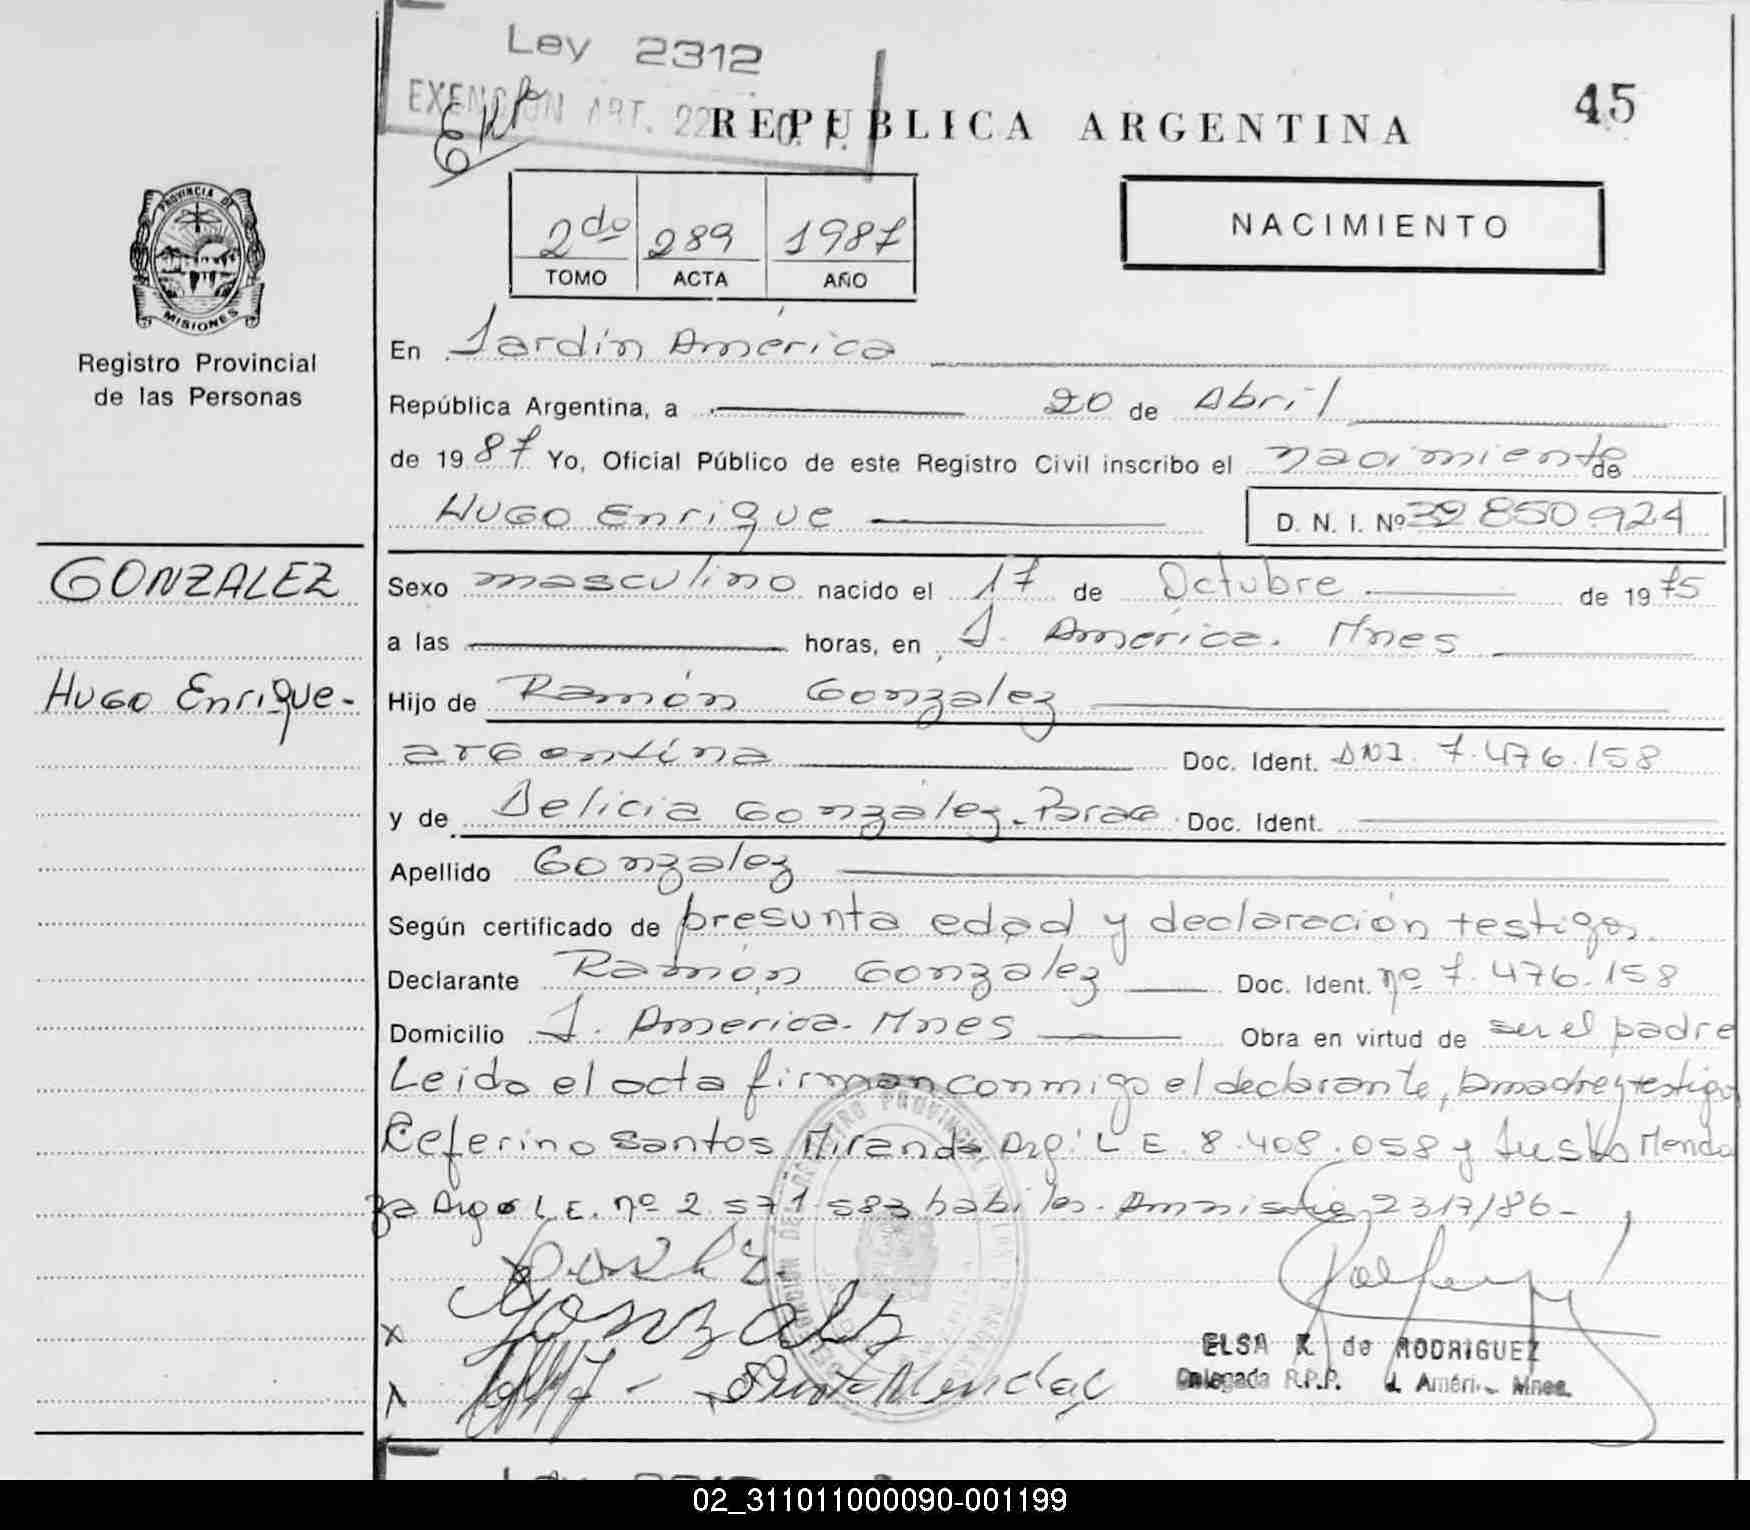 Ley 2312
EXENCION ART. 22
45
REPUBLICA ARGENTINA
PROVINCIA DE
MISIONES
Registro Provincial
de las Personas
2do 289 1987
TOMO ACTA AÑO
NACIMIENTO
En Jardín América
República Argentina, a 20 de Abril
de 1987 Yo, Oficial Público de este Registro Civil inscribo el nacimiento de
Hugo Enrique D. N. I. Nº 32 850.924
GONZALEZ
Hugo Enrique-
Sexo masculino nacido el 17 de Octubre de 1975
a las horas, en J. América. Mnes
Hijo de Ramón Gonzalez
argentina Doc. Ident. DNI. 7.476.158
y de Delicia Gonzalez. Parag Doc. Ident.
Apellido Gonzalez
Según certificado de presunta edad y declaración testigos.
Declarante Ramón Gonzalez Doc. Ident. nº 7.476.158
Domicilio J. America. Mnes Obra en virtud de ser el padre
Leida el acta firman conmigo el declarante, la madre y testigos
Ceferino Santos Miranda Arg. L E. 8.408.058 y Justo Mendo
za Argº L E. nº 2.571.583 habiles. Amnistia 2317/86-
Gonzalez
x
Justo Mendoz
ELSA R. de RODRIGUEZ
Delegada R.P.P. J. Améri. Mnes.
Ley 2312
02_311011000090-001199